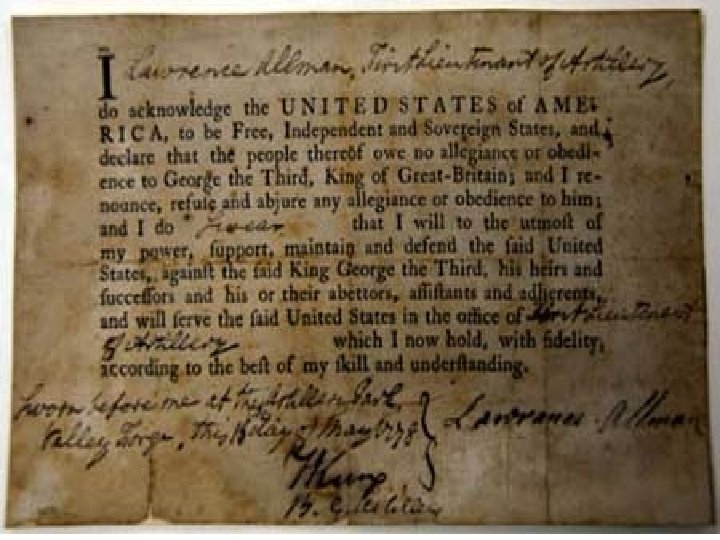 I Lawrence Allman, First Lieutenant of Artillery,
do acknowledge the UNITED STATES of AME-
RICA, to be Free, Independent and Sovereign States, and
declare that the people thereof owe no allegiance or obedi-
ence to George the Third, King of Great-Britain; and I re-
nounce, refuſe and abjure any allegiance or obedience to him;
and I do Swear that I will to the utmoſt of
my power, ſupport, maintain and defend the ſaid United
States, againſt the ſaid King George the Third, his heirs and
ſucceſſors and his or their abettors, aſſiſtants and adherents,
and will ſerve the ſaid United States in the office of First Lieutenant
of Artillery which I now hold, with fidelity,
according to the beſt of my ſkill and underſtanding.
Sworn before me at the Artillery Park,
Valley Forge, this day of May 1778
Lawrence Allman
HKnox
B. G. Artillery